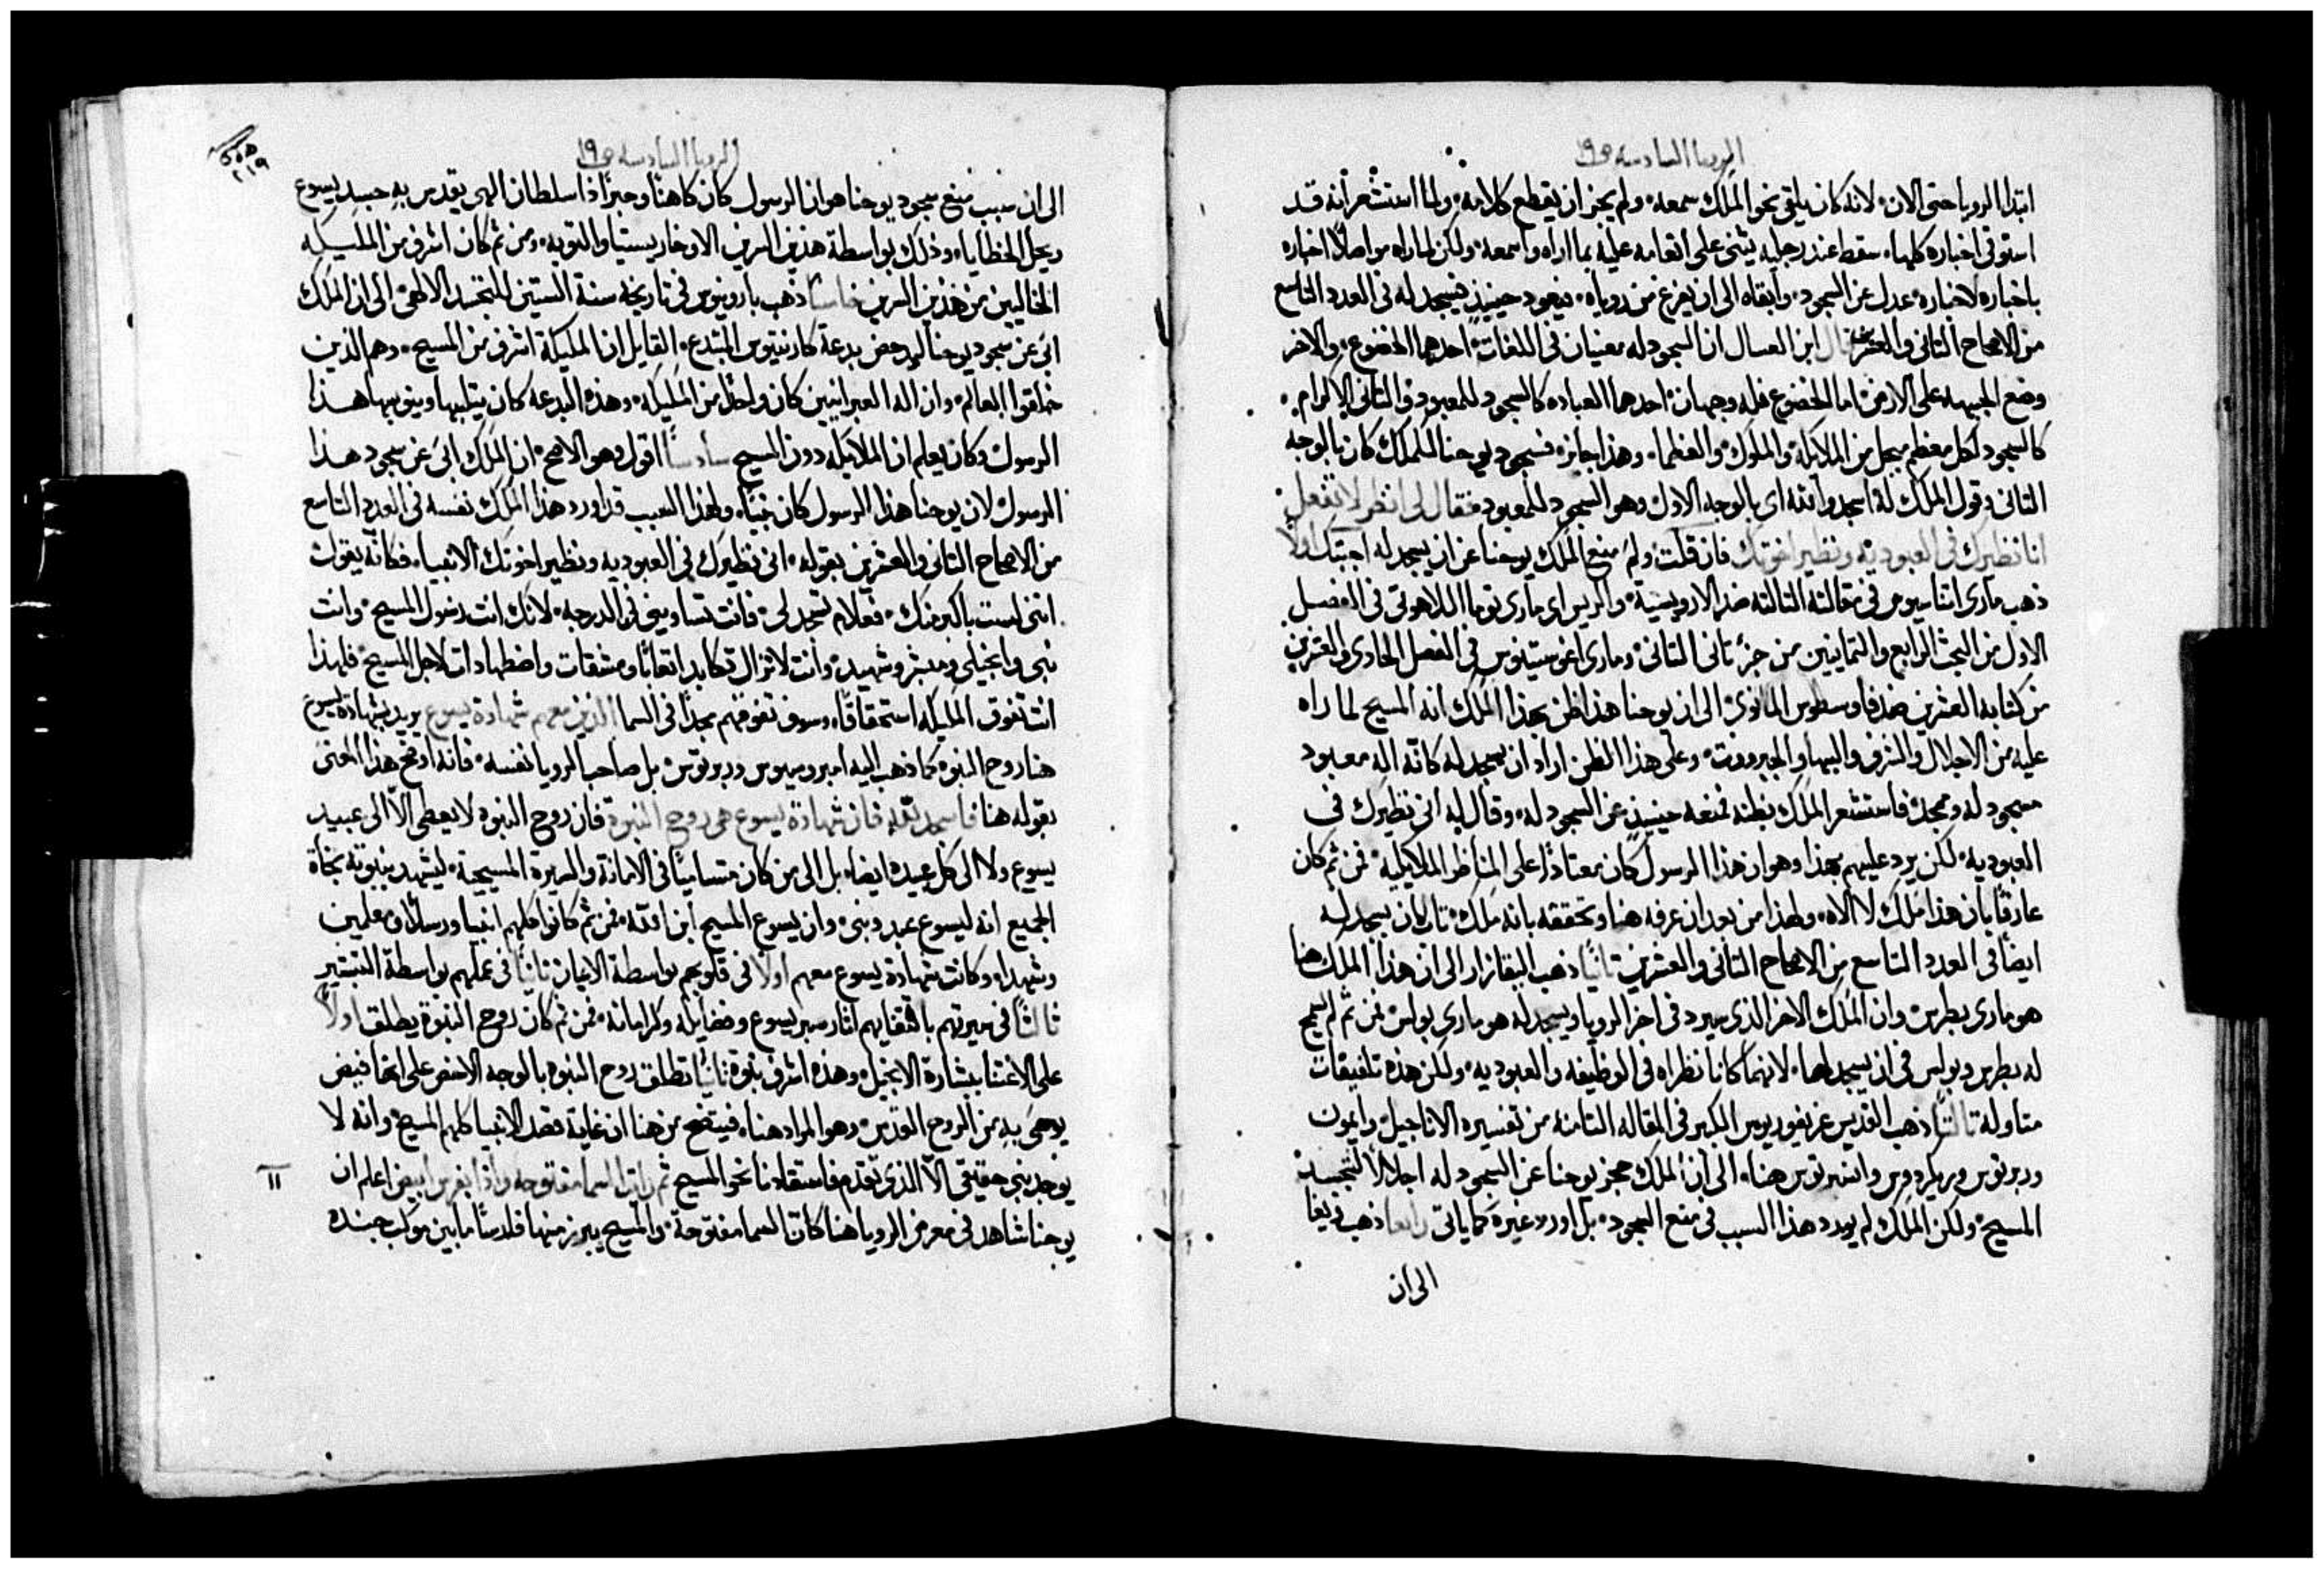 الرويا السادسه ص ١٩
ابتدا الرويا حتى الان، لانه كان يلقى نحو الملك سمعه، ولم يجز ان يقطع كلامه، ولما استشعر انه قد
استوفى اخباره كلها، سقط عند رجليه يثنى على انعامه عليه بما اراه واسمعه، ولكن لما راه مواصلاً اخباره
باخباره لاخباره، عدل عن السجود، وابقاه الى ان يفرغ من روياه، فيعود حينيذٍ فيسجد له فى العدد التاسع
من الاصحاح الثانى والعشرين قال ابن العسال ان السجود له معنيان فى اللغات، احدهما الخضوع، والاخر
وضع الجبهه على الارض، اما الخضوع فله وجهان، احدهما العباده كالسجود للمعبود، والثانى الاكرام،
كالسجود لكل معظم مبجل من الملايكه، والملوك، والعظما، وهذا جايز، فسجود يوحنا للملك كان بالوجه
الثانى، وقول الملك له، اسجد لله اى بالوجه الاول وهو السجود للمعبود فقال لى انظر لا تفعل
انا نظيرك فى العبوديه ونظير اخوتك فان قلت، ولم منع الملك يوحنا عن ان يسجد له، اجبتك اولاً
ذهب مارى اثناسيوس فى مقالته الثالثه ضد الاريوسية، والريس اى مارى توما اللاهوتى فى الفصل
الاول من البحث الرابع والثمانيين من جزء ثانى الثانى، ومارى اغوستينوس فى الفصل الحادى والعشرين
من كتابه العشرين ضد فاوسطوس المانوى، الى ان يوحنا هذا ظن بهذا الملك انه المسيح لما راه
عليه من الاجلال والشرف والبها والجبرووت، وعلى هذا الظن اراد ان يسجد له كانّه اله معبود
مسجود له وممجد، فاستشعر الملك بظنه فمنعه حينيذٍ عن السجود له، وقال له انى نظيرك فى
العبوديه، لكن يرد عليهم بهذا وهو ان هذا الرسول كان معتاداً على المناظر الملايكيه، فمن ثم كان
عارفاً بان هذا ملك لا الاه، ولهذا من بعد ان عرفه هنا وتحققه بانه ملك، تاب ان يسجد له
ايضاً فى العدد التاسع من الاصحاح الثانى والعشرين ثانياً ذهب البقازار الى ان هذا الملك هنا
هو مارى بطرس، وان الملك الاخر الذى سيرد فى اخر الرويا ويسجد له هو مارى بولس، فمن ثم لم يسمح
له بطرس وبولس فى ان يسجد لهما، لانهما كانا نظراه فى الوظيفه والعبوديه، ولكن هذه تلفيقات
متاولة ثالثاً ذهب القديس غريغوريوس الكبير فى المقاله الثامنه من تفسيره الاناجيل، وايمون
وربرتوس وبريكردوس وانسبرتوس هنا، الى ان الملك حجز يوحنا عن السجود له اجلالاً لتجسد
المسيح، ولكن الملك لم يورد هذا السبب فى منع السجود، بل اورد غيره كما ياتى رابعاً ذهب ريفا
الى ان
الرويا السادسه ص ١٩
٢١٩
الى ان سبب منع سجود يوحنا هو ان الرسول كان كاهناً وحبراً ذا سلطان الهى يقدس به جسد يسوع
ويحل الخطايا، وذلك بواسطة هذين السرين الاوخاريستيا والتوبه، ومن ثم كان اشرف من المليكه
الخاليين من هذين السرين خامساً ذهب بارونيوس فى تاريخه سنة الستين للتجسد الالهى، الى ان الملك
ابى عن سجود يوحنا ليدحض بدعة كارنتيوس المبتدع، القايل ان المليكة اشرف من المسيح، وهم الذين
خلقوا العالم، وان اله العبرانيين كان واحداً من المليكه، وهذه البدعه كان يثلبها وينوبها هذا
الرسول وكان يعلم ان الملايكه دون المسيح سادساً اقول وهو الاصح، ان الملك ابى عن سجود هذا
الرسول لان يوحنا هذا الرسول كان نبياً، ولهذا السبب قد اورد هذا الملك نفسه فى العدد التاسع
من الاصحاح الثانى والعشرين بقوله، انى نظيرك فى العبوديه ونظير اخوتك الانبيا، فكانّه يقول
اننى لست باكبر منك، فعلام تسجد لى، فانت تساوينى فى الدرجه، لانك انت رسول المسيح، وانت
نبى وانجيلى ومبشر وشهيد، وانت لا تزال تكابد اتعاباً ومشقات واضطهادات لاجل المسيح، فلهذا
انت تفوق المليكه استحقاقاً، وسوف تفوقهم مجداً فى السما الذين معهم شهادة يسوع يريد بشهادة يسوع
هنا روح النبوه، كما ذهب اليه امبروسيوس وربرتوس، بل صاحب الرويا نفسه، فانه اوضح هذا المعنى
بقوله هنا فاسجد لله فان شهادة يسوع هى روح النبوة فان روح النبوه لا يعطى الّا الى عبيد
يسوع ولا الى كل عبيده ايضاً، بل الى من كان متسامياً فى الامانة والسريرة المسيحية، ليشهد بنبوته تجاة
الجميع انه ليسوع عبد ونبى، وان يسوع المسيح ابن الله، فمن ثم كانوا كلهم انبيا ورسلاً ومعلمين
وشهدا، وكانت شهادة يسوع معهم اولاً فى قلوبهم بواسطة الايمان ثانياً فى عملهم بواسطة التبشير
ثالثاً فى سيرتهم باقتفايهم اثار سير يسوع وفضايله وكراماته، فمن ثم كان روح النبوة يطلق اولاً
على الاعتنا ببشارة الانجيل، وهذه اشرف نبوة ثانياً تطلق روح النبوه بالوجه الاخص على انها فيض
يوحى به من الروح القدس، وهو المراد هنا، فيتضح من هنا ان غاية قصد الانبيا كلهم المسيح، وانه لا
يوجد نبى حقيقى الّا الذى تقدم فاستقادنا نحو المسيح ثم رايت السما مفتوحه واذا بفرس ابيض اعلم ان
١١
يوحنا شاهد فى معرض الرويا هنا كان السما مفتوحة، والمسيح يبرز منها فارساً ما بين موكب جنده